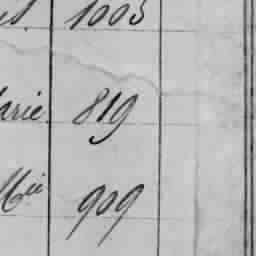 1003
arie 819
Mie 909